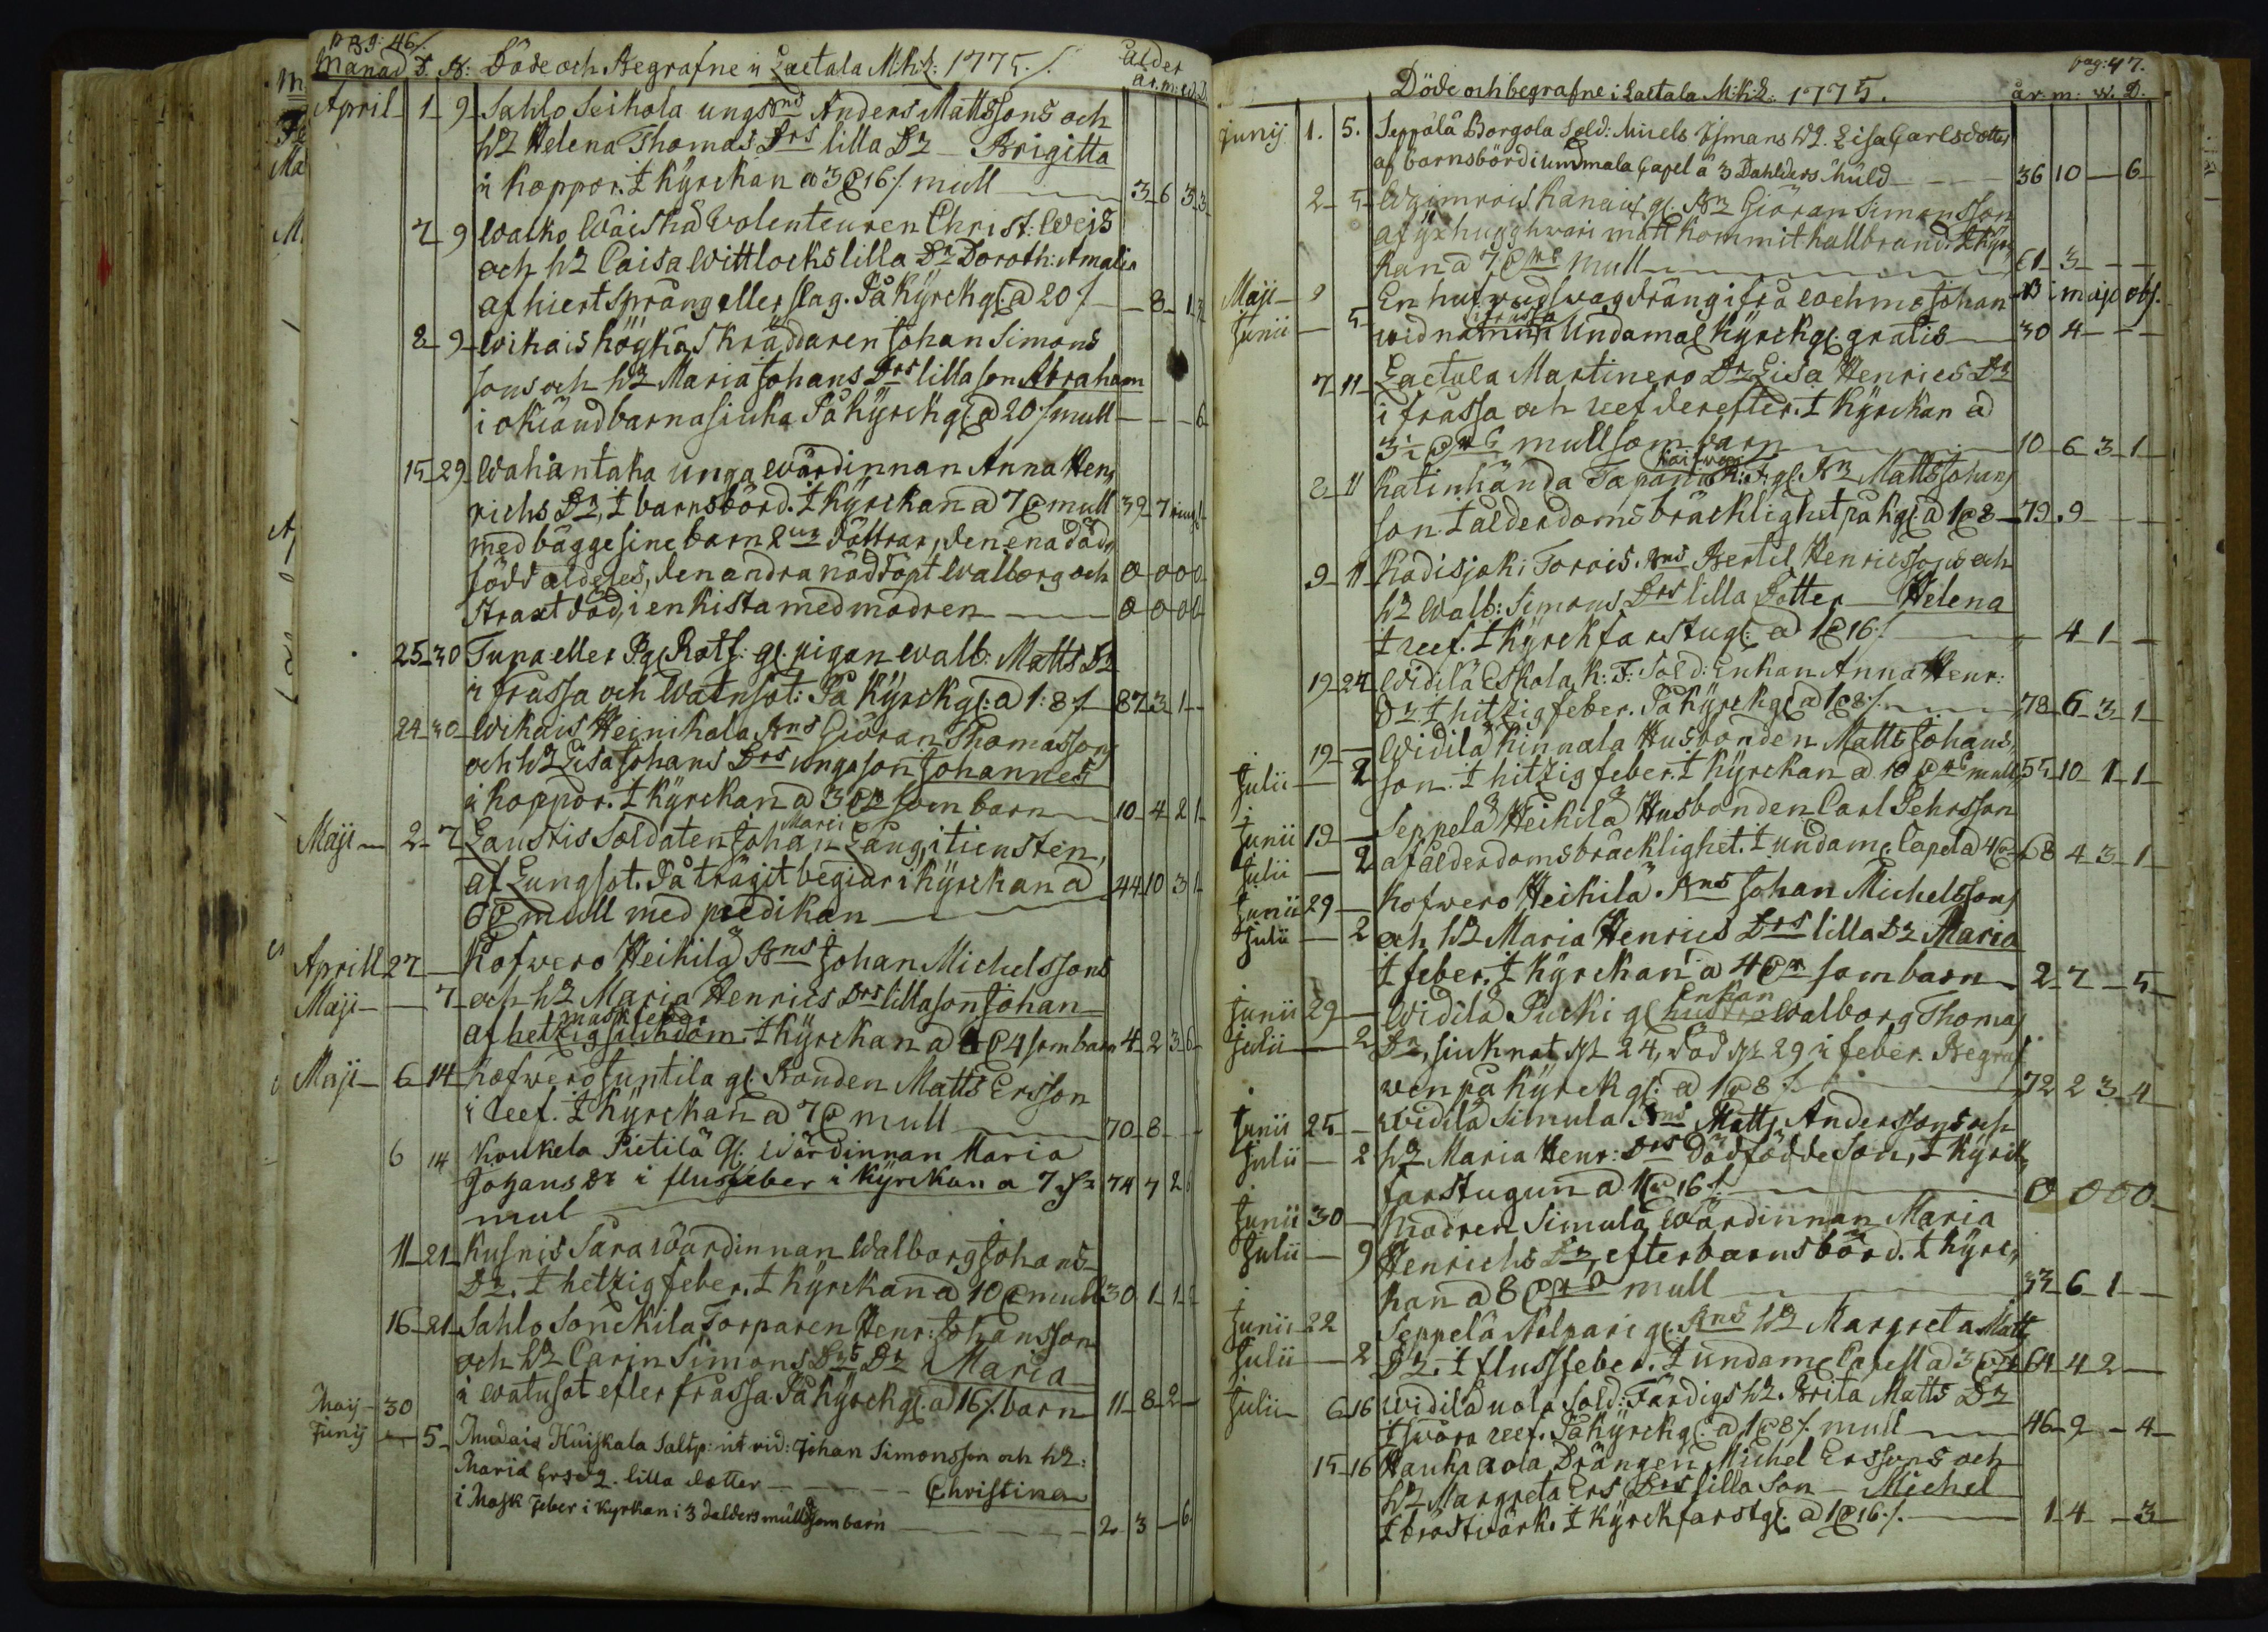 pag: 46.
Månad D. B: Döde och Begrafne i Laetala M:k:L: 1775. ålder
år. m: w. D.
April 1 9 Sahlo Seikola ungsbnd Anders Mattssons och
h2 Helena Thomas Drs lilla Dr Brigitta
i koppor. I Kyrckan a 3 @ 16 /. mull 3 6 3 3
7 9 Walko Wäiskä Volenteuren Christ: Weis
och h2 Caisa Wittlocks lilla Dr Doroth: Amalia
af hiertsprång eller slag. På kyrckg: a 20 /. 8 1 3
8 9 Wikais höykä Skräddaren Johan Simons
sons och h2 Maria Johans Drs lilla son Abraham
i okiänd barnasiuka På kyrckg: a 20 /. mull 6
15 29 Wahantaka unga Wärdinnan Anna Hen
richs Dr, I barnsbörd. I Kyrckan a 7 @ mull 39 7
med bägge sine barn 2ne döttrar, den ena död
född aldeles, den andra nöddöpt Walborg och 0 0 0 0
straxt död, i en kista med modren 0 0 0 0
25 30 Tuna eller Pg Rotf: gl. pigan Walb: Matts Dr
i frässa och Watnsot: På Kyrckg: a 1: 8 /. 87 3 1
24 30 Wikais Heinikala Bns Giöran Thomassons
och h2 Lisa Johans Drs unga son Johannes
i koppor. I Kyrckan a 3 @ som barn 10 4 2 1
Maji 2 7 Laustis Soldaten Johan Marci Lång, i tiensten,
af Lungsot. På trägit begiär i Kyrckan a 44 10 3 1
6 @ mull med predikan
Aprill 27 Kofwero Heikilä Bns Johan Michelssons
Maji 7 och h2 Maria Henrics Drs lilla son Johan
af hetzig siukdom maskfeber I Kyrckan a @ 4 som barn 4 2 3 6
Maji 6 14 Kofwero Juntila gl. Bonden Matts Ersson
i reef. I Kyrckan a 7 @ mull 70 8
6 14 Koukela Pietilä Gl: Wärdinnan Maria
Johans Dr i flusfeber i Kyrckan a 7 74 7 2
mul
11 21 Kusnis Sara Wärdinnan Walborg Johans
Dr. I hetzig feber. I Kyrckan a 10 @ mull 30 1 1 2
16 21 Sahlo Sonckila Torparen Henr: Johansson
och h2 Carin Simons Drs Dr Maria
i watusot efter frässa På Kyrckg: a 16 /. barn 11 8 2
Maij 30
Junij 5 Mudais Huiskala Johan Simonsson och h2:
Maria Ersd2. lilla dotter Christina
i Mask feber i Kyrkan i 3 dalders mull som barn 2 3 6
pag: 47.
Döde och begrafne i Laetala M:k:L: 1775. år. m: w. D.
Junij 1. 5. Seppälä Borgola Sold: Michels Ismans h2. Lisa Carlsdotter
af barnsbörd i undmala Capel a 3 Dahlders huld 36 10 6
2 5 Waimrois Kanais gl. Bn Giöran Simonsson
af yxhugg hwari mått kommit kallbrand. I Kyr
kan a 7 @ mull 61 3
Maji En hufwudswag dräng ifrå Lochmo Johan i maji obs.
Junii 5 wid namn frässa Undamal Kyrckg: gratis 30 4
7 11 Laetala Martinero Dr Lisa Henrics Dr
i frässa och reef derefter. I Kyrckan a
3 @ mull som barn 10 6 3 1
8 11 Katinhända Tapani gl. Bn Matts Johans
son. I ålderdoms bräcklighet på kg: a 1 @ 8 79. 9
9 11 Kodisjoki Torois. Bns Bertel Henricssons och
h2 Walb: Simons Drs lilla Dotter Helena
I reef. I Kyrckfarstug: a 1 @ 16 /. 4 1
19 24 Widilä Eskola K: F: Sold: Enkan Anna Henr:
Dr I hitzig feber. På Kyrckg: a 1 @ 8 /. 78 6 3 1
19 Widilä Kinnala Husbonden Matts Johans
Julii 2 son. I hitzig feber. I Kyrckan a 10 @ mull 55 10 1 1
Junii 19 Seppelä Heikilä Husbonden Carl Pehrsson
Julii 2 af ålderdoms bräcklighet. I undam: Capel a 4 @ 68 4 3 1
Junii 29 Kofwero Heikilä. Bns Johan Michelssons
Julii 2 och h2 Maria Henrics Drs lilla Dr Maria
I feber. I Kyrckan a 4 @ som barn 2 7 5
Junii 29 Widilä Pucki gl hustro Enkan Walborg Thomas
Julii 2 Dr, siuknat 24, död 29 i feber. Begraf
wen på Kyrckg: a 1 @ 8 /. 72 2 3 4
Junii 25 Widilä Simula Bns Matts Anderssons och
Julii 2 h2 Maria Henr: Drs Dödfödde Son, I Kyrck
farstugun a 1 @ 16 /. 0 0 0 0
Junii 30 Modren Simula Wärdinnan Maria
Julii 9 Henrichs Dr, efter barnsbörd. I Kyrc
kan a 8 @ mull 33 6 1
Junii 22 Seppelä Nälpäri gl. Bns h2 Margreta Matts
Julii 2 Dr. I flussfeber. I undam: Capell a 3 @ 64 4 2
Julii 6 16 Widilä uola Sold: Färdigs h2. Brita Matts Dr
I swåra reef. På kyrckg: a 1 @ 8 /. mull 46 9 4
15 16 Haukkaola Drängen Michel Erssons och
h2 Margreta Ers Drs lilla Son Michel
I bröstwärk. I Kyrckfarstg: a 1 @ 16. /. 1 4 3